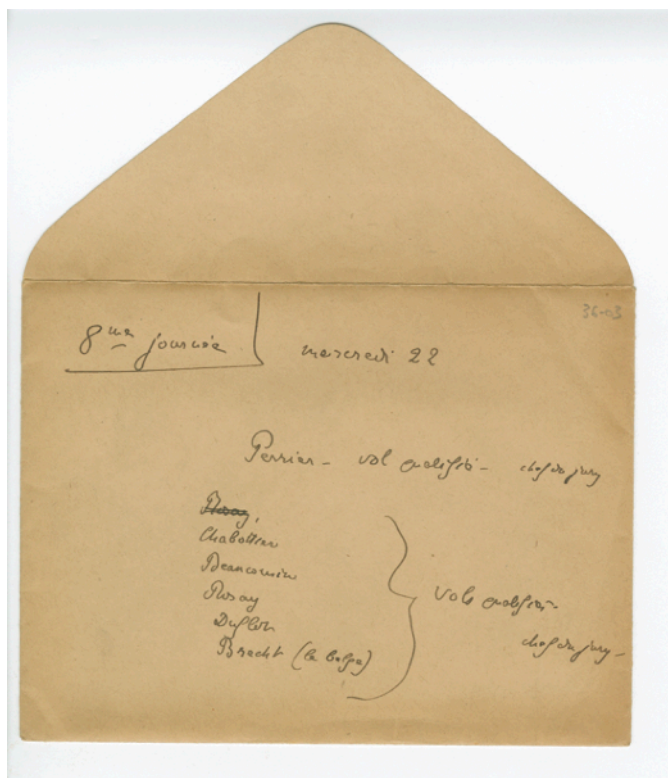 8me journée
mercredi 22
36-03
Perrier - vol qualifié - chef du jury
Rosay,
Chabottier
Beaucousin
Rosay
Bracht (le belge)
vols qualifiés -
chef du jury -